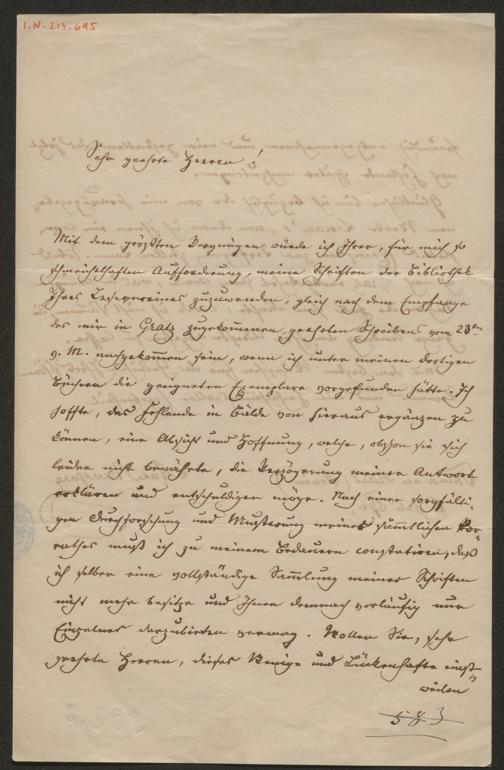 I.N. 213.695
Sehr geehrte Herren!
Mit dem größten Vergnügen würde ich Ihrer, für mich so
schmeichelhaften Aufforderung, meine Schriften der Bibliothek
Ihres Lesevereines zuzuwenden, gleich nach dem Empfange
des mir in Gratz zugekommenen, geehrten Schreibens vom 23ten
v. M. nachgekommen sein, wenn ich unter meinen dortigen
Büchern die geeigneten Exemplare vorgefunden hätte. Ich
hoffte, das Fehlende in Bälde von hieraus ergänzen zu
können, eine Absicht und Hoffnung, welche, obschon sie sich
leider nicht bewährte, die Verzögerung meiner Antwort
erklären und entschuldigen möge. Nach einer sorgfälti-
gen Durchforschung und Musterung meines sämmtlichen Vor-
rathes muß ich zu meinem Bedauern constatiren, daß
ich selber eine vollständige Sammlung meiner Schriften
nicht mehr besitze und Ihnen demnach vorläufig nur
Einzelnes darzubieten vermag. Wollen Sie, sehr
geehrte Herren, dieses Wenige und Lückenhafte einst-
weilen